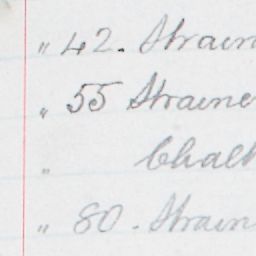 " 42. Strain
" 55 Straine
" Chalk
" 80. Strain